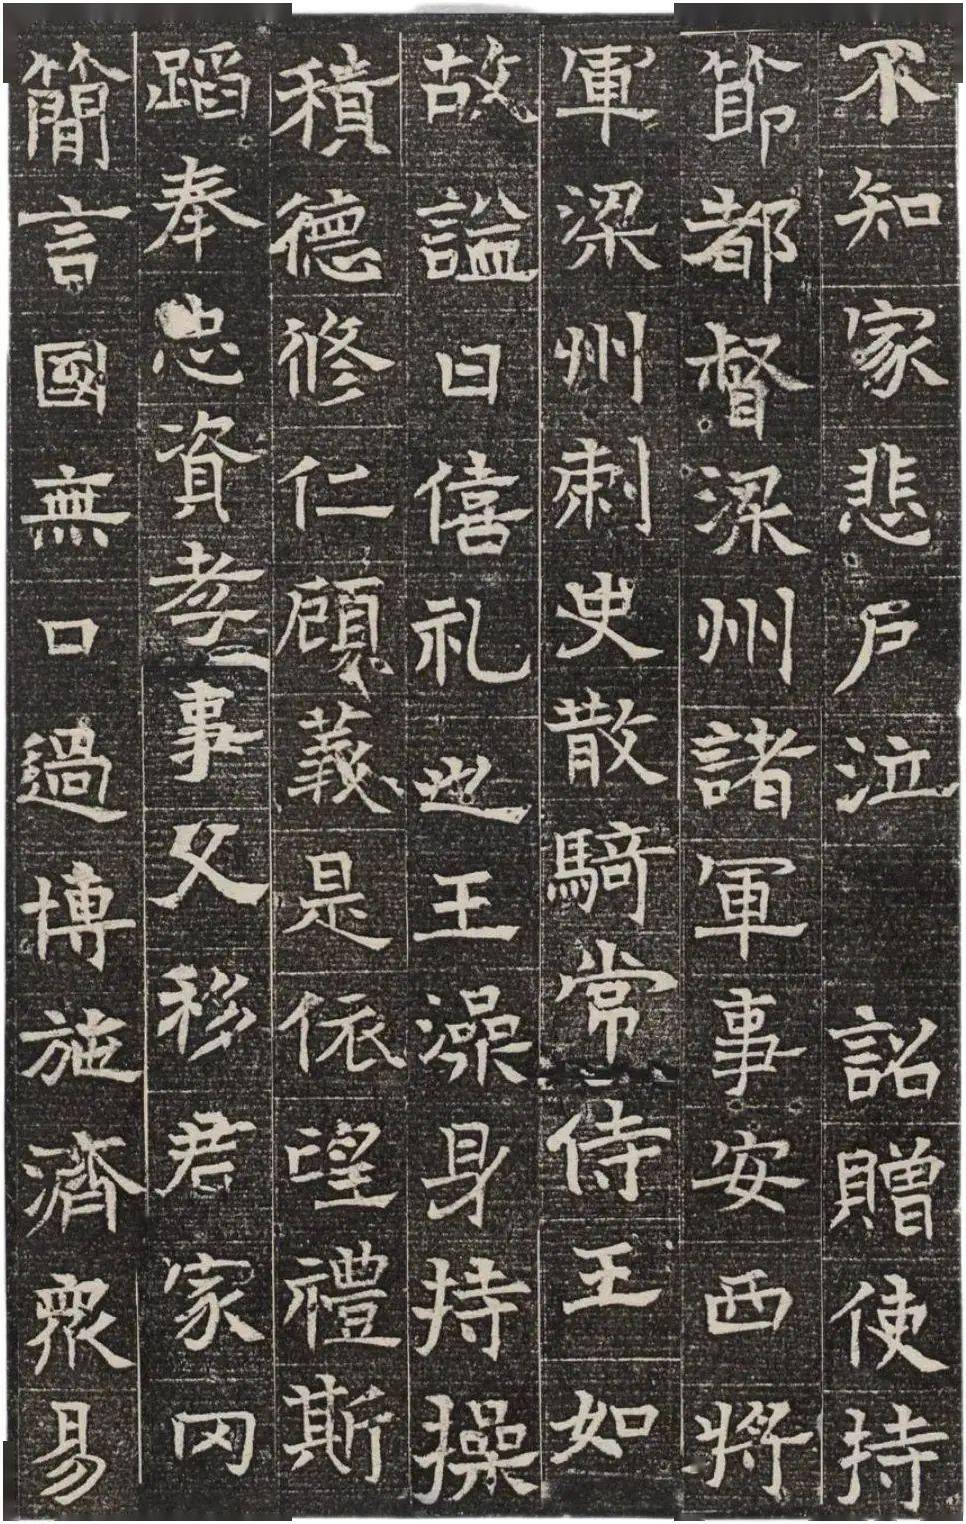 不知家悲戶泣　詔贈使持
節都督梁州諸軍事安西將
軍梁州刺史散騎常侍王如
故謚曰僖礼也王澡身持操
積德修仁顧義是依望禮斯
蹈奉忠資孝事父移君家罔
簡言國無口過博施濟衆易